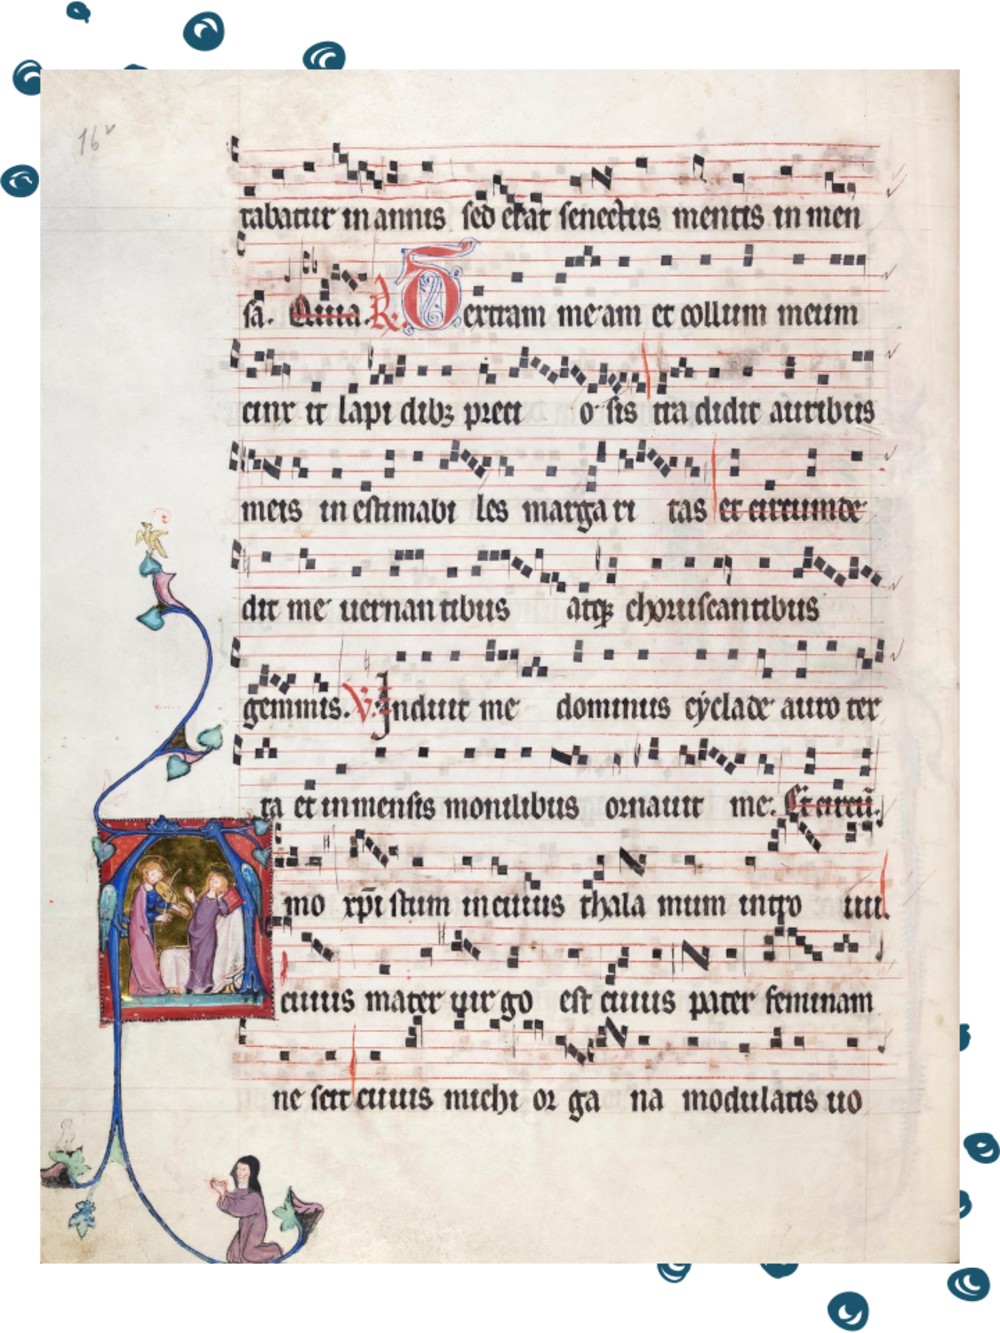 16v
tabatur in annis sed erat senectus mentis in men
sa. Quita. R. Dextram meam et collum meum
cinx it lapi dibꝫ preci o sis tra didit auribus
meis in estimabi les marga ri tas et circumde
dit me uernan tibus atqꝫ choruscantibus
gemmis. V. Induit me dominus cyclade auro tex
ta et inmensis monilibus ornauit me. Et circū.
mo xp̄i stum in cuius thala mum intro iui
cuius mater uir go est cuius pater feminam
ne scit cuius michi or ga na modulatis uo